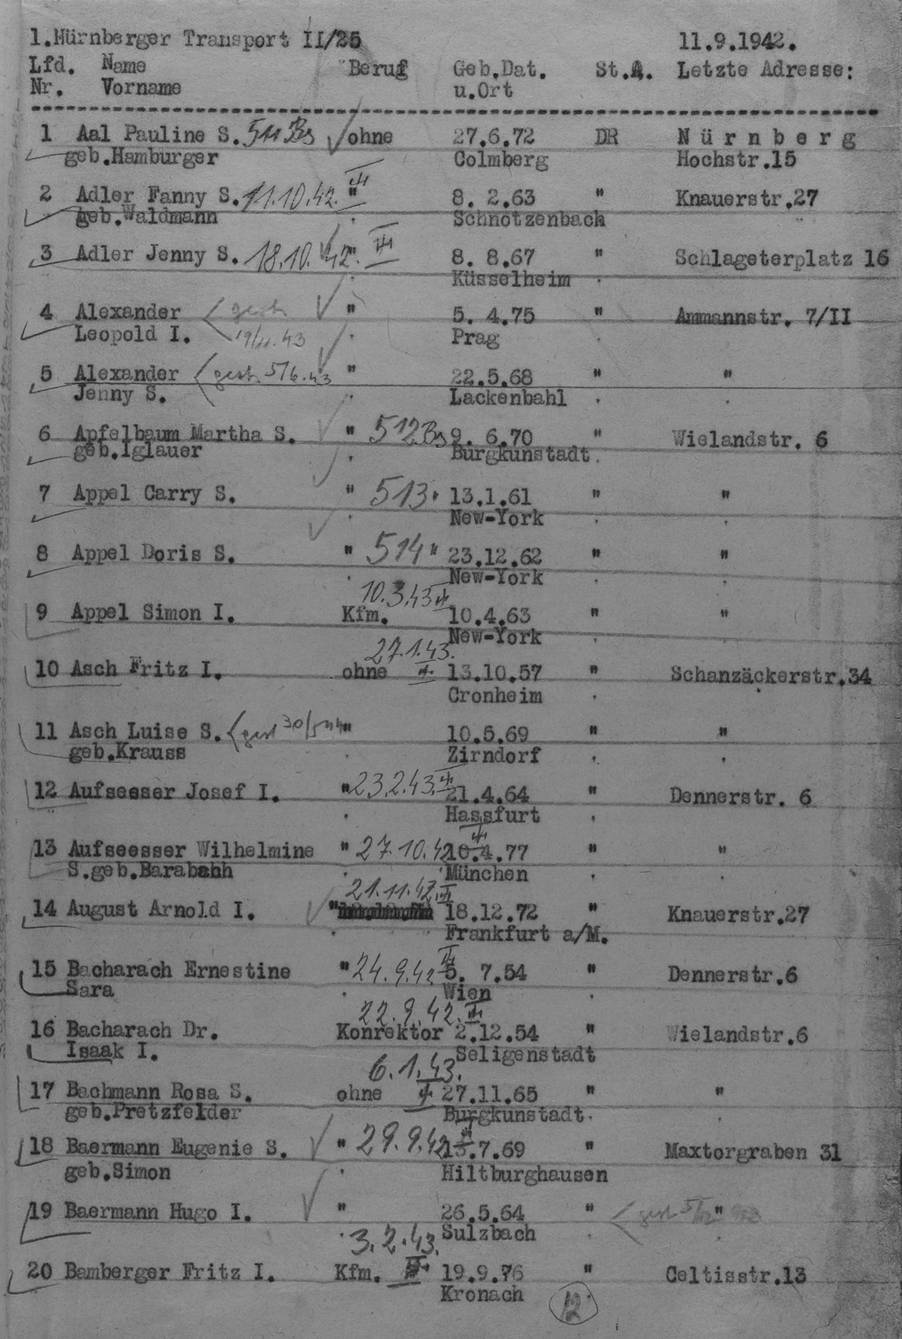 1.Nürnberger Transport II/25 11.9.1942.
Lfd. Name Beruf Geb.Dat. St.A. Letzte Adresse:
Nr. Vorname u.Ort
1 Aal Pauline S. 511 Bs ohne 27.6.72 DR Nürnberg
geb.Hamburger Colmberg Hochstr.15
2 Adler Fanny S. 11.10.42. " 8. 2.63 " Knauerstr.27
geb.Waldmann Schnotzenbach
3 Adler Jenny S. 18.10.42 " 8. 8.67 " Schlageterplatz 16
Küsselheim
4 Alexander gest. " 5. 4.75 " Ammannstr. 7/II
Leopold I. Prag
5 Alexander gest. 5/6.43 " 22.5.68 " "
Jenny S. Lackenbahl
6 Apfelbaum Martha S. " 512 Bs 9. 6.70 " Wielandstr. 6
geb.Iglauer Burgkunstadt
7 Appel Carry S. " 513 " 13.1.61 " "
New-York
8 Appel Doris S. " 514 " 23.12.62 " "
New-York
10.3.43
9 Appel Simon I. Kfm. 10.4.63 " "
New-York
27.1.43.
10 Asch Fritz I. ohne 13.10.57 " Schanzäckerstr.34
Cronheim
11 Asch Luise S. gest " 10.5.69 " "
geb.Krauss Zirndorf
12 Aufseeser Josef I. " 23.2.43. 21.4.64 " Dennerstr. 6
Hassfurt
13 Aufseesser Wilhelmine " 27.10.42 10.4.77 " "
S.geb.Barabahh München
21.11.42.
14 August Arnold I. " 18.12.72 " Knauerstr.27
Frankfurt a/M.
15 Bacharach Ernestine " 24.9.42 5. 7.54 " Dennerstr.6
Sara Wien
22.9.42.
16 Bacharach Dr. Konrektor 2.12.54 " Wielandstr.6
Isaak I. Seligenstadt
6.1.43.
17 Bachmann Rosa S. ohne 27.11.65 " "
geb.Pretzfelder Burgkunstadt
18 Baermann Eugenie S. " 29.9.42 13.7.69 " Maxtorgraben 31
geb.Simon Hiltburghausen
19 Baermann Hugo I. " 26.5.64 " gest "
Sulzbach
3.2.43.
20 Bamberger Fritz I. Kfm. 19.9.76 " Celtisstr.13
Kronach 12